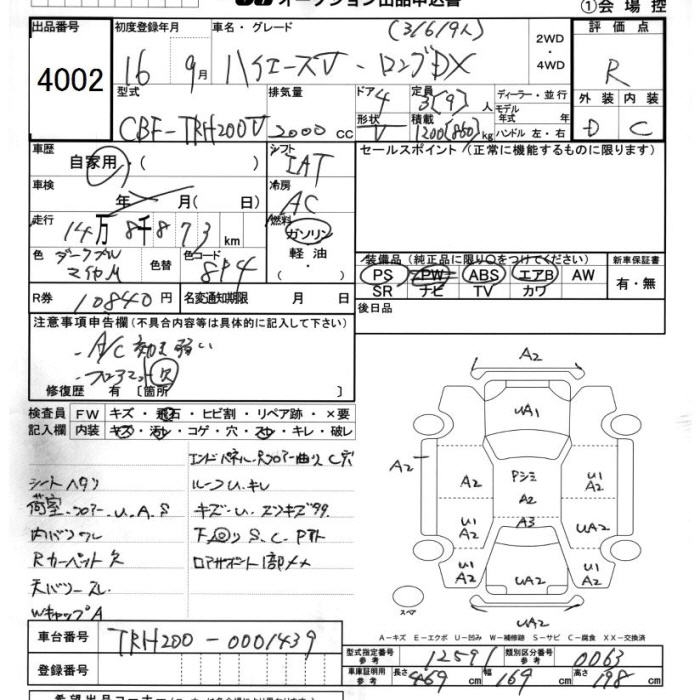 オークション出品申込書
①会場控
出品番号
4002
初度登録年月
16 9月
車名・グレード
(3/6/9人)
ハイエースV - ロングDX
2WD
・4WD
評価点
R
型式
CBF-TRH200V
排気量
2000 cc
ドア 4
形状 V
定員 3[9]人
積載 1200[850]kg
ディーラー・並行
モデル年式 年
ハンドル 左・右
外装 内装
D C
車歴
自家用・( )
シフト
IAT
セールスポイント(正常に機能するものに限ります)
車検
年 月( 日)
冷房
AC
走行
14万8千873km
燃料
ガソリン
軽油
・( )
色 ダークブルーマイカM
色替
色コード 8P4
装備品(純正品に限り○をつけてください)
PS PW ABS エアB AW
SR ナビ TV カワ
新車保証書
有・無
R券 10840円
名変通知期限 月 日
後日品
注意事項申告欄(不具合内容等は具体的に記入して下さい)
・A/C 効き弱い
・フロアマット欠
修復歴 有 [箇所 ]
検査員記入欄
FW キズ・飛石・ヒビ割・リペア跡・×要
内装 キズ・汚れ・コゲ・穴・スレ・キレ・破レ
エンドパネル・Rフロアー曲り C穴
シートヘタリ
ルーフU.キレ
荷室・フロアー.U.A.S
キズ・U.スリキズ多々
内バリワレ
下回りS.C.Pサト
Rカーペット欠
ロアサポート1部メメ
天バリスレ
WキャップA
A2
UA1
A2
A2
Pシミ
A2
U1
A2
U1
A2
A3
UA2
U1
A2
UA2
U1
A2
スペア
UA2
A-キズ E-エクボ U-凹み W-補修跡 S-サビ C-腐食 XX-交換済
車台番号 TRH200-0001439
登録番号
型式指定番号 参考 12591
類別区分番号 参考 0063
車庫証明用 参考 長さ 469 cm 幅 169 cm 高さ 198 cm